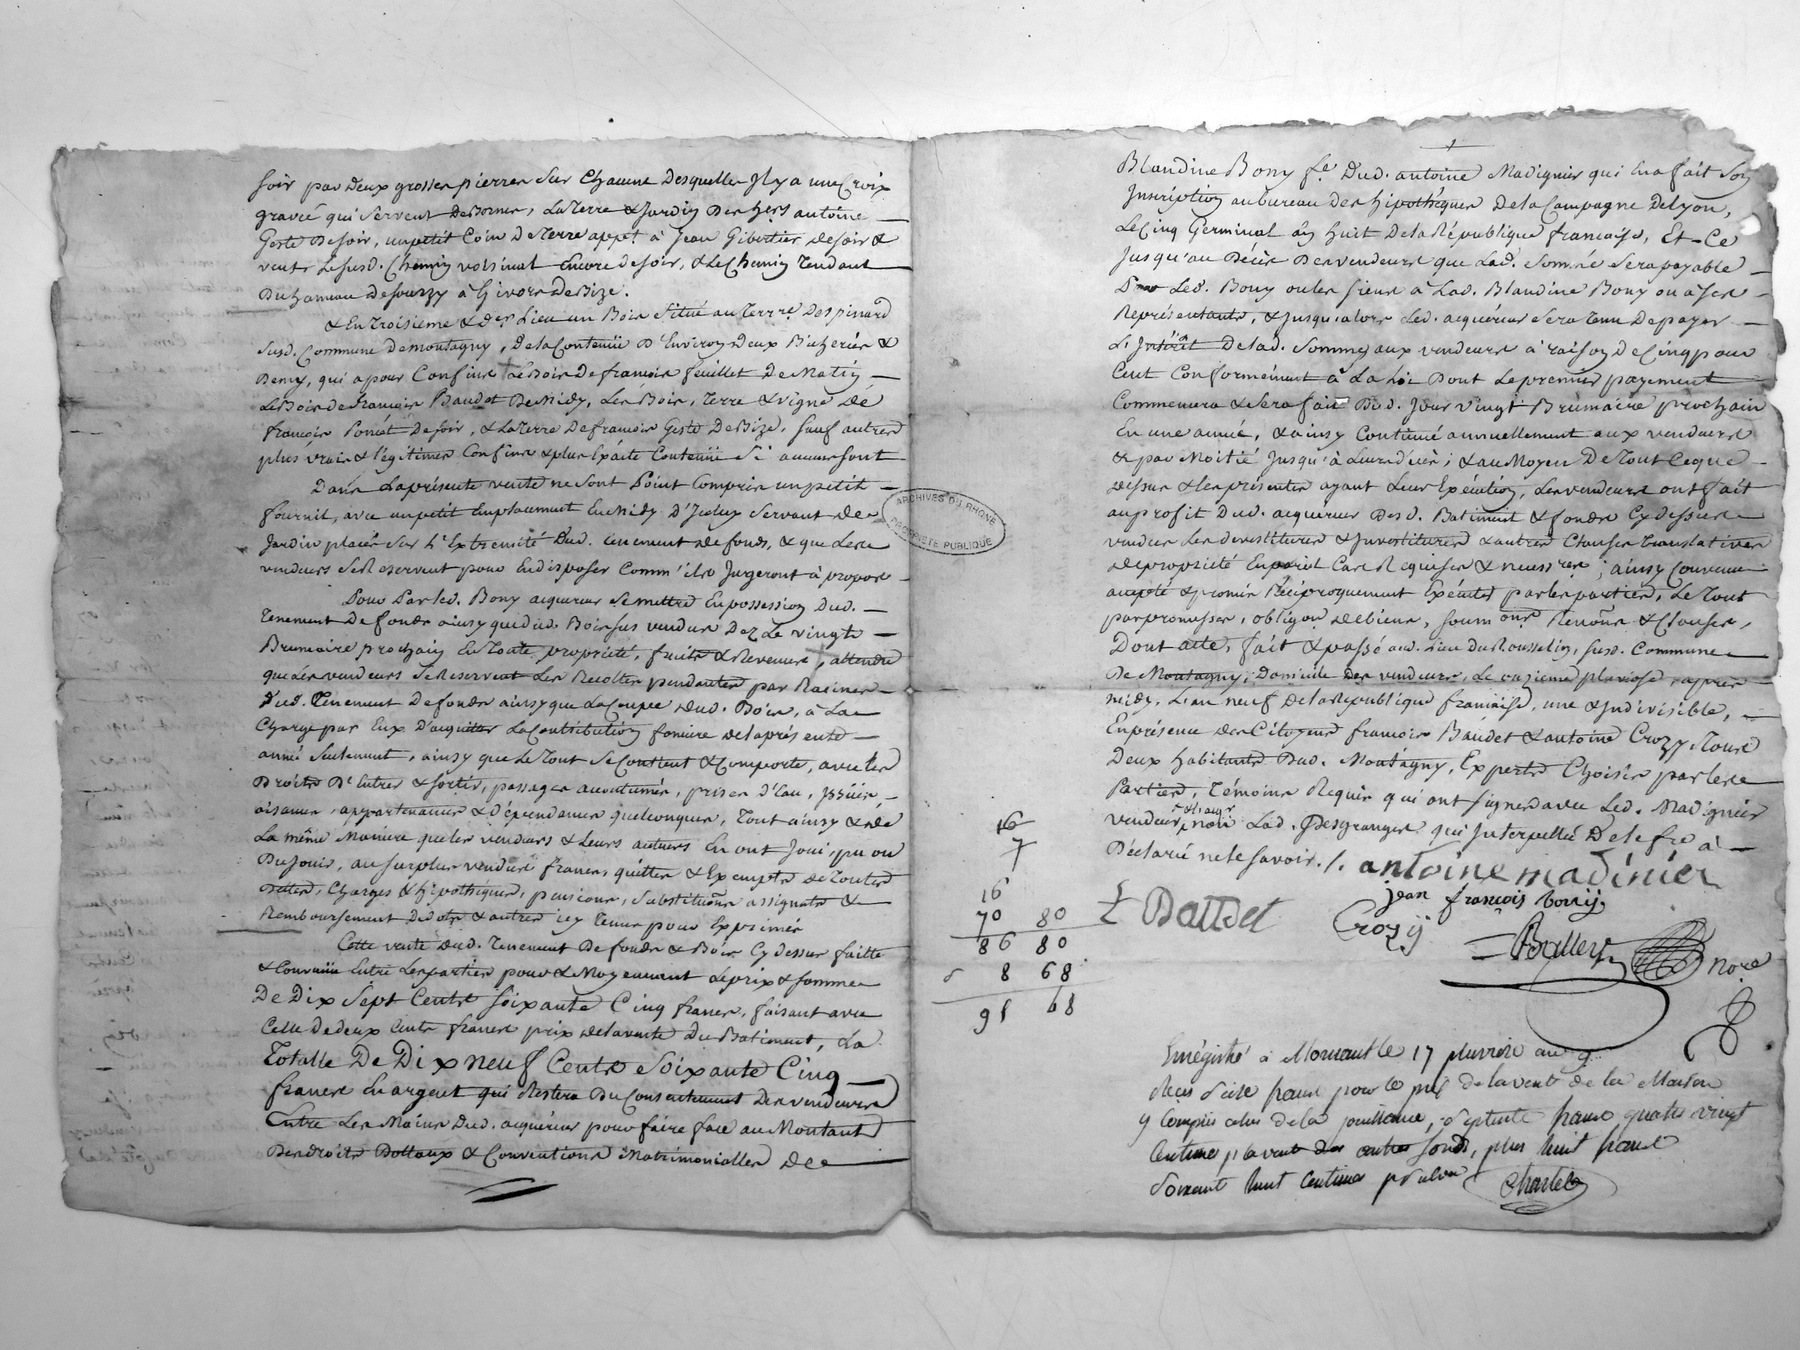 soir par Deux grosses pierres sur Chacune Desquelles Il y a une Croix
gravée qui servent De Bornes, La Terre & Jardin Des hers antoine
Geste De soir, un petit Coin De Terre appt. à Jean Gibertier de soir &
vent, Le susd. Chemin voisinal Encore de soir, & Le Chemin Tendant
Du hameau de sourzy à Givors De Bize.
& En Troisieme & der Lieu un Bois situé au Terre. Despinard
susd. Commune De montagny, De la Contenüe D'Environ Deux Bicherées &
Demy, qui a pour Confins Le Bois De francois feuillet De Matin
Le Bois de francois Baudet De Midy, Les Bois, Terre & vigne De
francois Poncet De soir, & La Terre De francois Geste De Bize, sauf autres
plus vrais & légitimes Confins & plus Exacte Contenüe si aucuns sont
Dans La présente vente ne sont Point Compris un petit
fournil, avec un petit Emplacement En Midy D'Iceluy servant de
Jardin placés sur L'Extremité Dud. tenement de fonds, & que Les
vendeurs se Reservent pour En disposer Comm'ils Jugeront à propos
Pour Par led. Bony acquereur se mettre En possession Dud.
Tenement De fonds ainsy que dud. Bois sus vendus Dez Le vingt
Brumaire prochain En Toute propriété, fruits & Revenus, attendu
que les vendeurs se Reservent Les Recoltes pendantes par Racines
Dud. Tenement De fonds ainsy que La Coupe Dud. Bois, à La
Charge par Eux D'acquitter La Contribution fonciere de la présente
année seulement, ainsy que Le Tout se Contient & Comporte, avec les
Droits D'Entres & sorties, passages accoutumés, prises D'Eau, Issües,
aisances, appartenances & dépendances quelconques, Tout ainsy & de
La même Maniere que les vendeurs & Leurs auteurs En ont Joui, pu ou
Du Jouir, au surplus vendus francs, quittes & Exempts de Toutes
Dettes, Charges & hipotheques, pensions, substitutions assignats &
Remboursement Dicots & autres icy tenus pour Exprimés
Cette vente dud. Tenement De fonds & Bois Cy dessus faitte
& Convenüe Entre Les parties pour & Moyennant Le prix & somme
De Dix Sept Cents soixante Cinq francs, faisant avec
Celle De deux Cents francs prix de la vente Du Batiment, La
Totalle De Dix neuf Cents soixante Cinq
francs En argent qui Restera Du Consentement Des vendeurs
Entre Les Mains Dud. acquereur pour faire face au Montant
Des droits Dottaux & Conventions Matrimonialles De
ARCHIVES DU RHONE
PROPRIETE PUBLIQUE
Blandine Bony fe. Dud. antoine Madignier qui En a fait son
Inscription au bureau des hipothéques De la Campagne De Lyon,
Le Cinq Germinal an huit De la République francaise, Et Ce
Jusqu'au Décès Des vendeurs que Lad. somme sera payable
Led. Bony ou les siens à Lad. Blandine Bony ou à ses
Représentants, & Jusqu'alors Led. acquereur sera Tenu De payer
L'Intérêt De lad. somme aux vendeurs à raison de Cinq pour
Cent Conformément à La Loi Dont Le premier payement
Commencera & sera fait Dud. Jour vingt Brumaire prochain
En une année, & ainsy Continué annuellement aux vendeurs
& par Moitié Jusqu'à Leurs décès; & au Moyen De Tout Ce que
dessus & les présentes ayant Leur Exécution, Les vendeurs ont fait
au profit Dud. acquereur Desd. Batiment & fonds Cy dessus
vendus Les devestitures & Investitures & autres Clauses Translatives
de propriété En pareil Cas Requises & necessres; ainsy Convenu
accepté & promis Réciproquement Exécuter par les parties, Le Tout
par promesses, obligaon de biens, soumons Renons & Clauses,
Dont acte, fait & passé aud. Lieu Du Rousselin, susd. Commune
De Montagny, Domicile des vendeurs, Le onzieme pluviose, apres
midy, L'an neuf de la République francaise, une & Indivisible,
En présence des Citoyens francois Baudet & antoine Crozy Tous
Deux habitants Dud. Montagny, Experts Choisis par les
Parties, Témoins Requis qui ont signés avec Led. Madignier
vendeur, non Lad. Desgranges qui Interpellée De le fre à
Déclaré ne le savoir. /.
antoine madinier
jean francois bony
Baudet
Crozy
Balley
nore
16
7
16
70 80
86 80
8 68
95 48
Enregistré à Mornant le 17 pluviose an 9.
Reçu seize francs pour le prix de la vente de la Maison
y compris celui de la jouissance, septante francs quatre vingt
Centimes pr la vente des autres fonds, plus huit francs
soixante huit Centimes pr subv.
Chastel